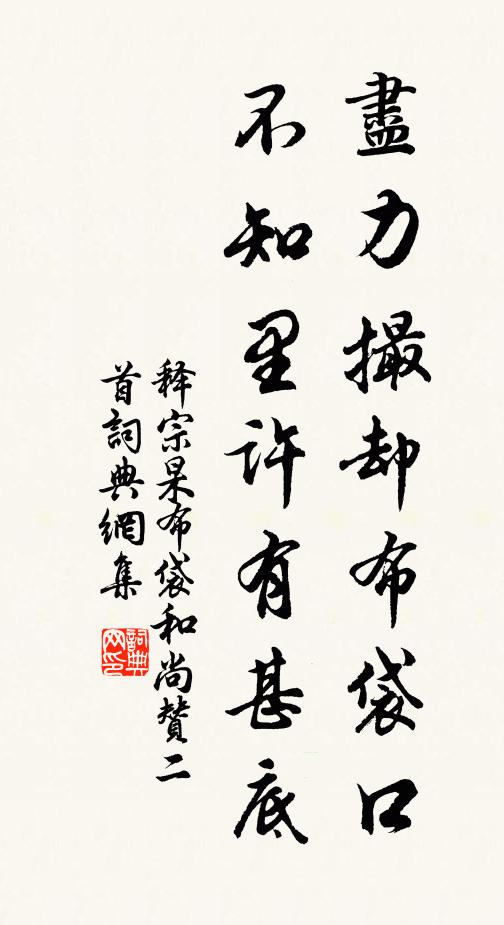 盡力撮却布袋口
不知里許有甚底
释宗杲布袋和尚赞二
首詞典網集
詞典网印